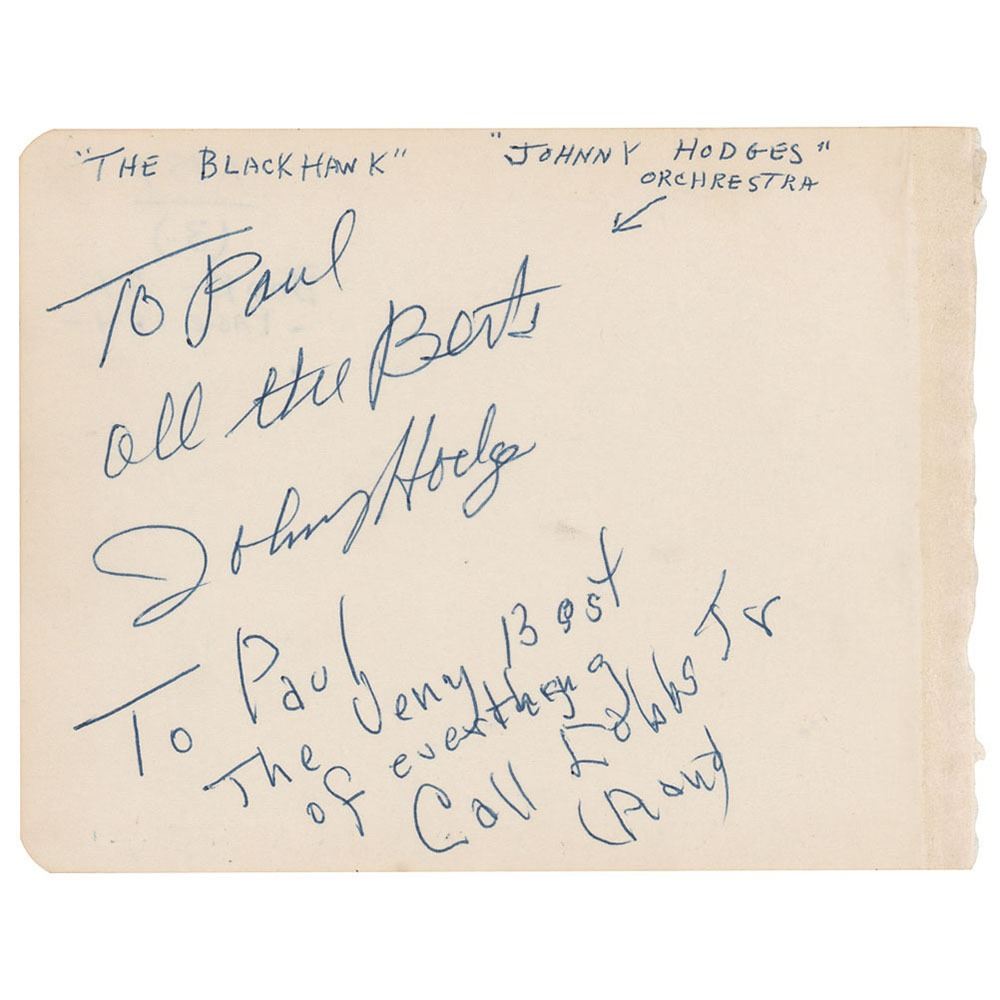 "THE BLACKHAWK"
"JOHNNY HODGES"
ORCHRESTRA
To Paul
all the Bests
Johnny Hodge
To Paul
The Veny Best
of everthing
Call Cobbs Jr